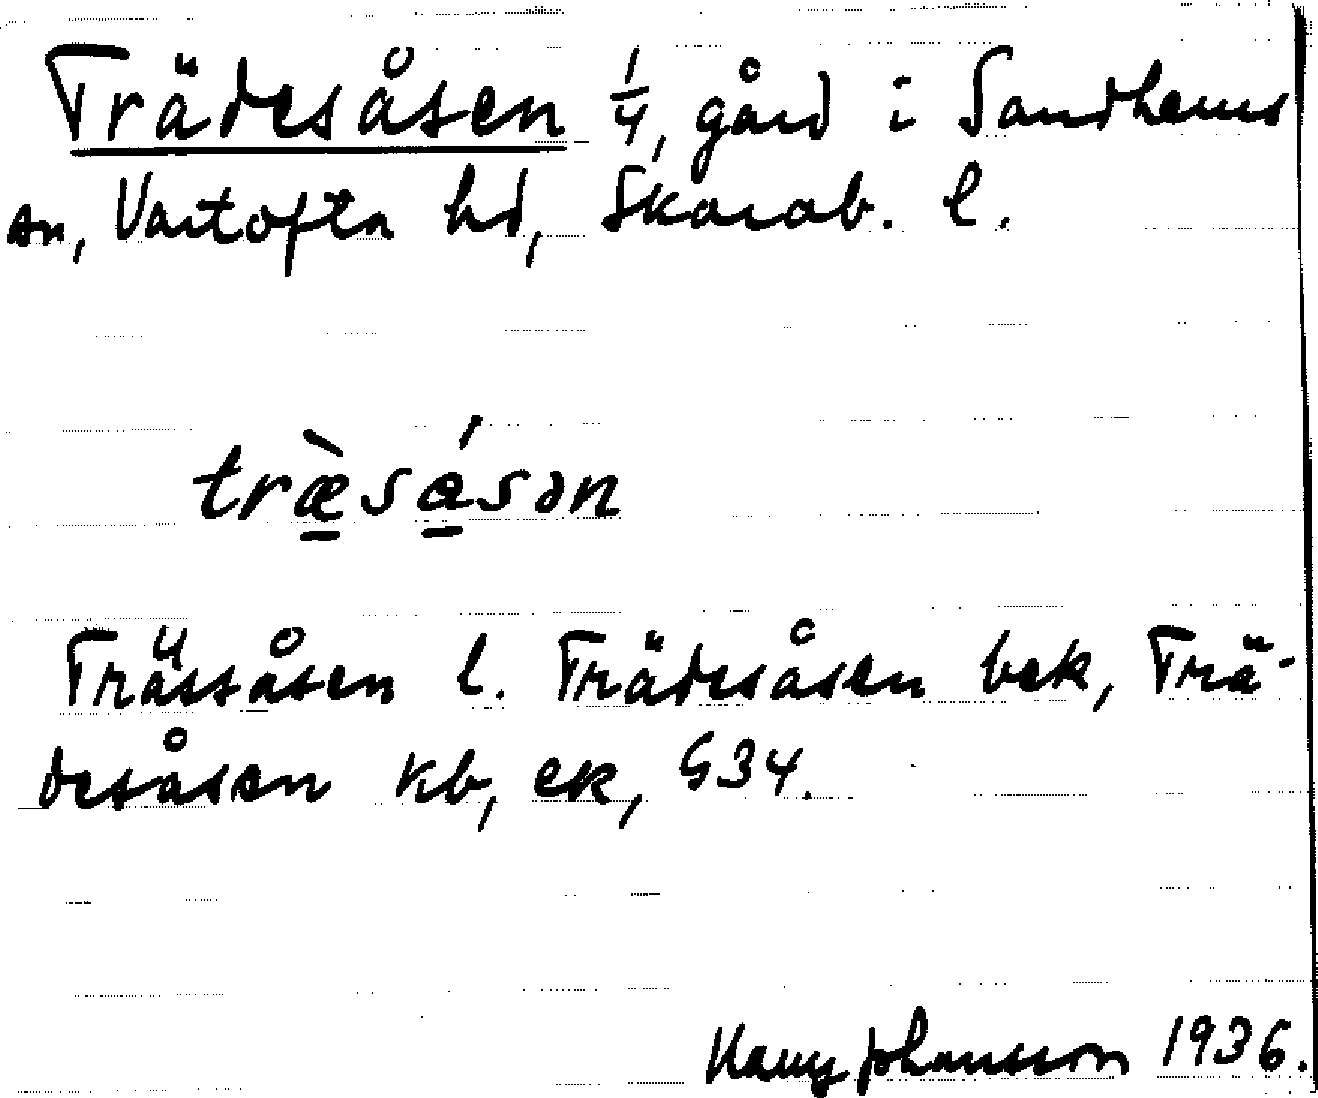 Trädesåsen 1/4, gård i Sandhems
sn, Vartofta hd, Skarab. l.
træ̠̀sá̠sən
Trässåsen l. Trädesåsen bek, Trä-
desåsen kb, ek, G34.
Harry Johansson 1936.